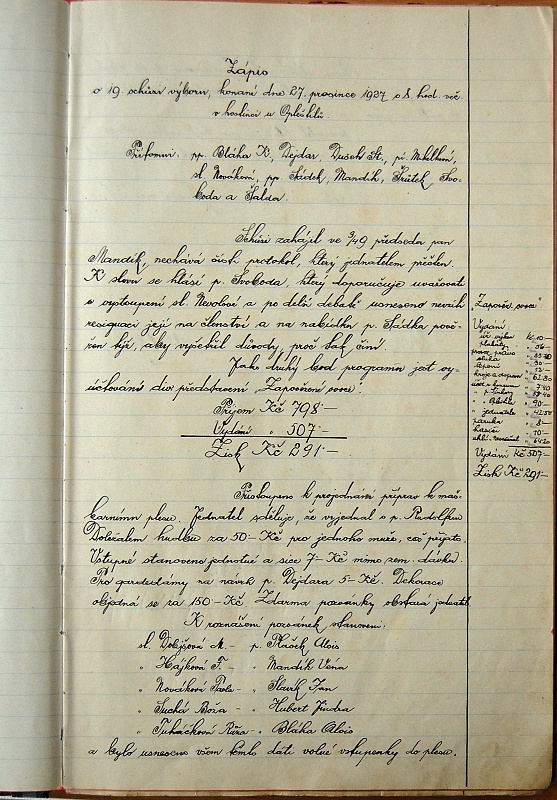 Zápis
o 19. schůzi výboru, konané dne 27. prosince 1927 o 8. hod. več.
v hostinci u Opleštilů.
Přítomni: pp. Bláha K., Dejdar, Dušek St., pí. Mikilková,
sl. Nováková, pp. Sádek, Mandík, Svo-
boda a Šalda.
Schůzi zahájil ve 3/49 předseda pan
Mandík, nechává čísti protokol, který jednatelem přečten.
K slovu se hlásí p. Svoboda, který doporučuje uvažovati
o vystoupení sl. a po delší debatě usneseno nevzíti
resignaci její na členství a na nabídku p. Sádka pově-
řen týž, aby vyšetřil důvody, proč tak činí.
Jako druhý bod programu jest vy-
účtování div. představení "Zapovězené ovoce".
Příjem Kč 798·–
Vydání " 507·–
Zisk Kč 291·–
Přistoupeno k projednání příprav k maš-
karnímu plesu. Jednatel sděluje, že vyjednal s p. Rudolfem
Doležalem hudbu za 50·– Kč pro jednoho muže, což přijato.
Vstupné stanoveno jednotné a sice 7·– Kč mimo zem. dávku.
Pro gardedámy na návrh p. Dejdara 5·– Kč. Dekorace
objedná se za 150·– Kč Zdarma pozvánky obstará jednatel
K roznášení pozvánek stanoveni:
sl. Dolejšová M. – p. Alois
" Hájková F. – " Mandík Venn
" Nováková Pavla – " Slavík Jan
" Suchá Boža – " Hubert Jindra
" Tuháčková Růža – " Bláha Alois
a bylo usneseno všem těmto dáti volné vstupenky do plesu.
"Zapověz. ovoce"
Vydání:
Kč 10·–
plakáty
práv. právo
stuha
topení
kroje a dopravi " 61·80
" 7·40
" p.
" 90·–
" jednatele " 42·50
paruka " 8·–
hasiči " 10·–
" 64·20
Vydání Kč 507·–
Zisk Kč 291·–